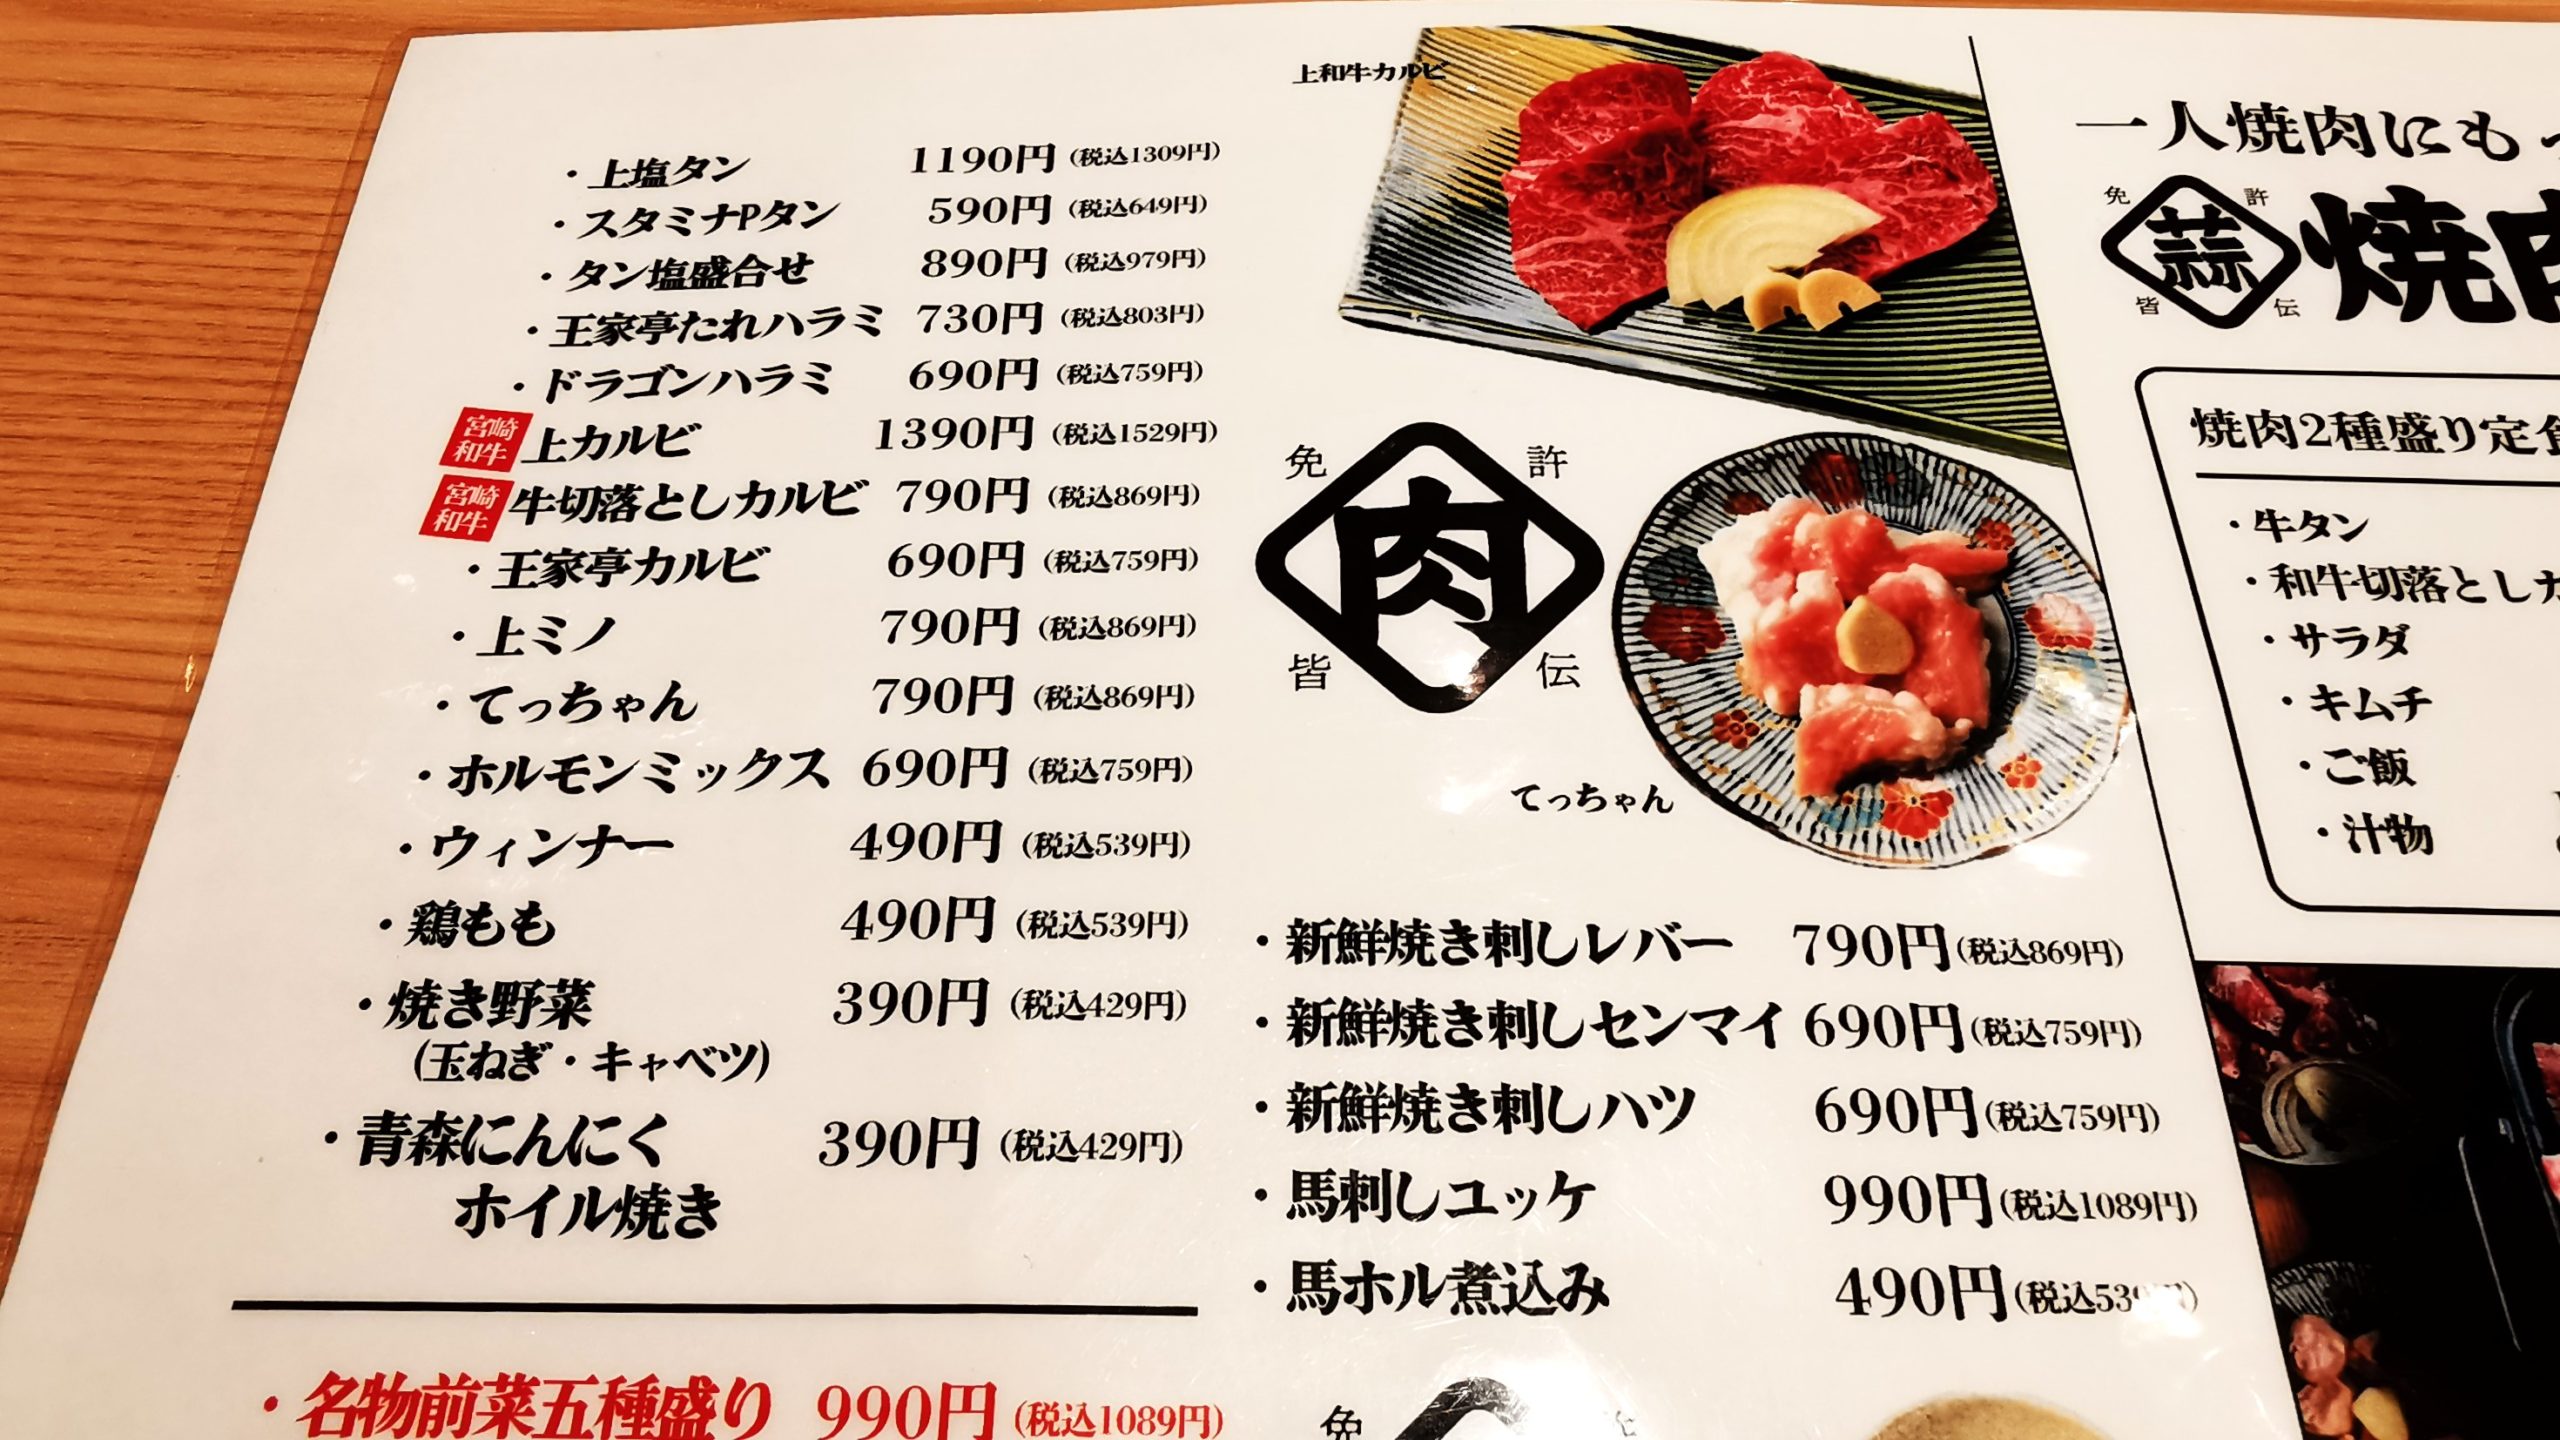 ・上塩タン 1190円 (税込1309円)
・スタミナPタン 590円 (税込649円)
・タン塩盛合せ 890円 (税込979円)
・王家亭たれハラミ 730円 (税込803円)
・ドラゴンハラミ 690円 (税込759円)
宮崎和牛 上カルビ 1390円 (税込1529円)
宮崎和牛 牛切落としカルビ 790円 (税込869円)
・王家亭カルビ 690円 (税込759円)
・上ミノ 790円 (税込869円)
・てっちゃん 790円 (税込869円)
・ホルモンミックス 690円 (税込759円)
・ウィンナー 490円 (税込539円)
・鶏もも 490円 (税込539円)
・焼き野菜 390円 (税込429円)
(玉ねぎ・キャベツ)
・青森にんにく 390円 (税込429円)
ホイル焼き
・名物前菜五種盛り 990円 (税込1089円)
上和牛カルビ
免許
肉
皆伝
てっちゃん
・新鮮焼き刺しレバー 790円(税込869円)
・新鮮焼き刺しセンマイ 690円(税込759円)
・新鮮焼き刺しハツ 690円(税込759円)
・馬刺しユッケ 990円(税込1089円)
・馬ホル煮込み 490円(税込539円)
免
一人焼肉にも
免許
蒜
皆伝
焼肉
焼肉2種盛り定食
・牛タン
・和牛切落としカ
・サラダ
・キムチ
・ご飯
・汁物